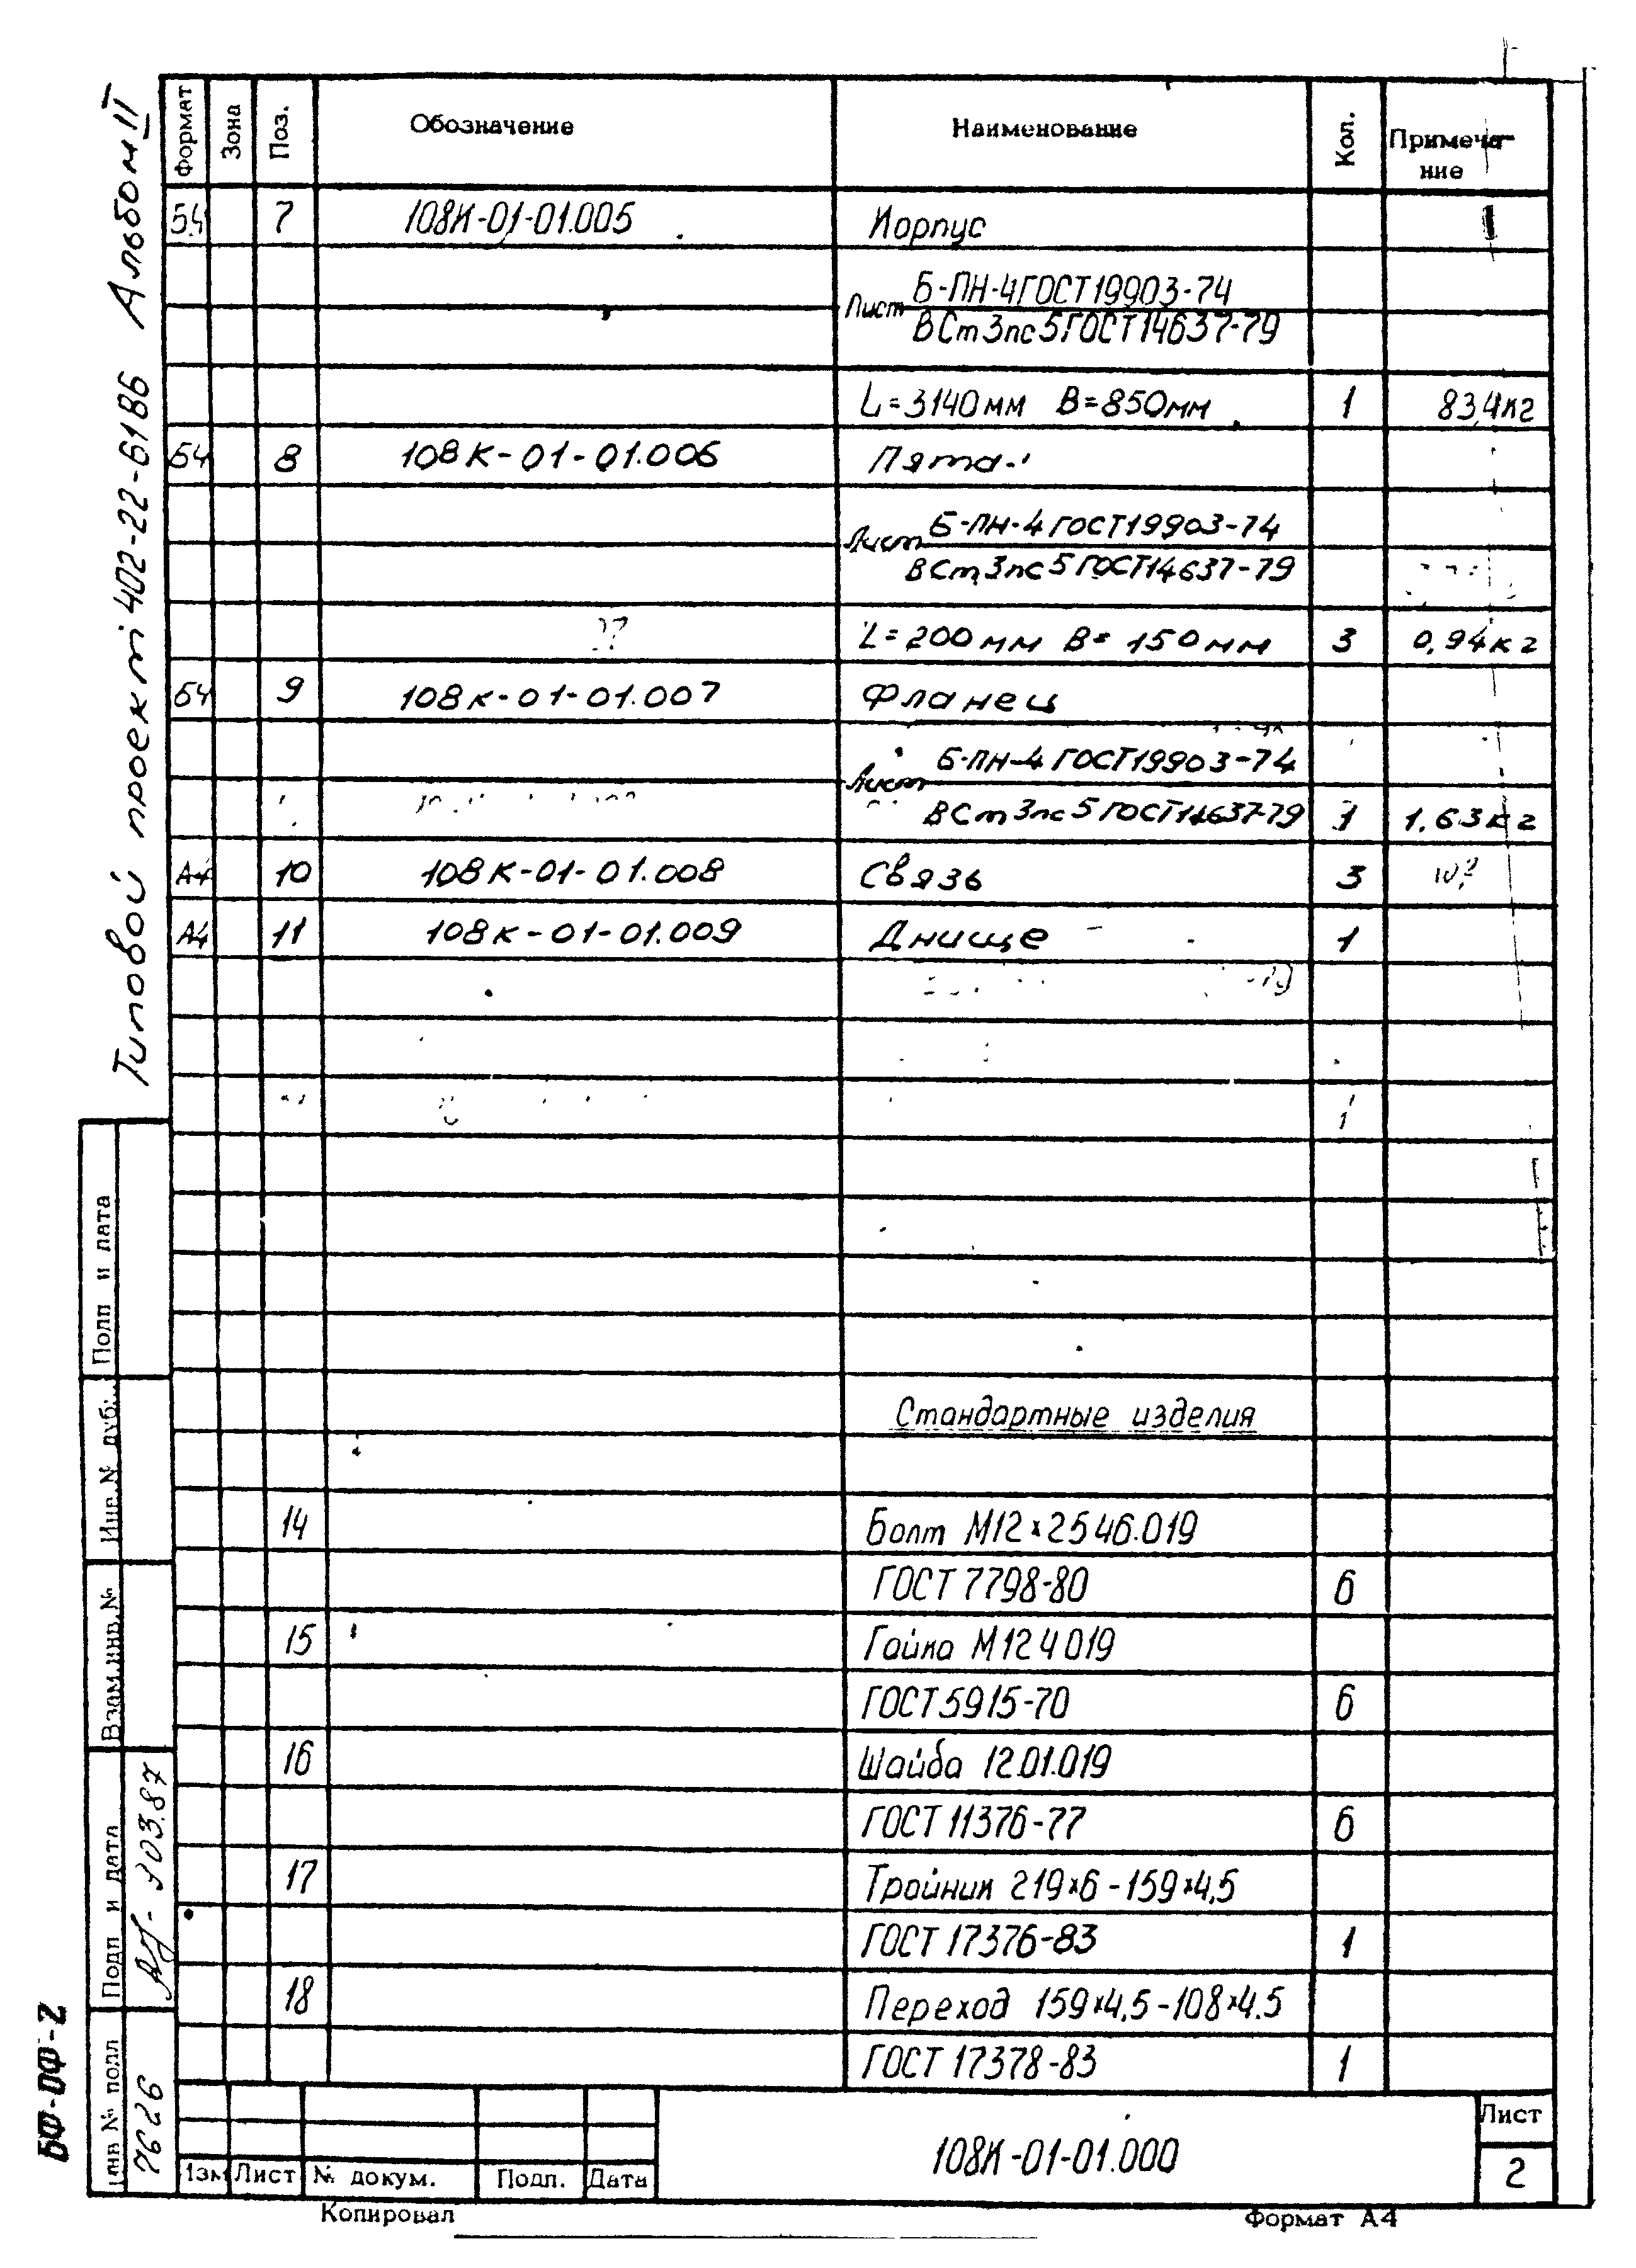 Типовой проект 402-22-61В6 Альбом II
Формат Зона Поз. Обозначение Наименование Кол. Примеча-
ние
Б4 7 108К-01-01.005 Корпус
Лист Б-ПН-4 ГОСТ 19903-74
ВСт3пс5 ГОСТ 14637-79
L=3140мм B=850мм 1 83,4кг
Б4 8 108К-01-01.006 Пята
Лист Б-ПН-4 ГОСТ 19903-74
ВСт3пс5 ГОСТ 14637-79
L=200мм B=150мм 3 0,94кг
Б4 9 108К-01-01.007 Фланец
Лист Б-ПН-4 ГОСТ 19903-74
ВСт3пс5 ГОСТ 14637-79 1 1,63кг
А4 10 108К-01-01.008 Связь 3
А4 11 108К-01-01.009 Днище 1
Стандартные изделия
14 Болт М12×25 46.019
ГОСТ 7798-80 6
15 Гайка М12 4 019
ГОСТ 5915-70 6
16 Шайба 12.01.019
ГОСТ 11376-77 6
17 Тройник 219×6-159×4,5
ГОСТ 17376-83 1
18 Переход 159×4,5-108×4.5
ГОСТ 17378-83 1
Подп и дата
Инв. № дубл.
Взам.инв.№
Подп и дата 303.87
инв № подл 7626
БФ-ОФ-2
Изм Лист № докум. Подп. Дата
108К-01-01.000
Лист
2
Копировал Формат А4